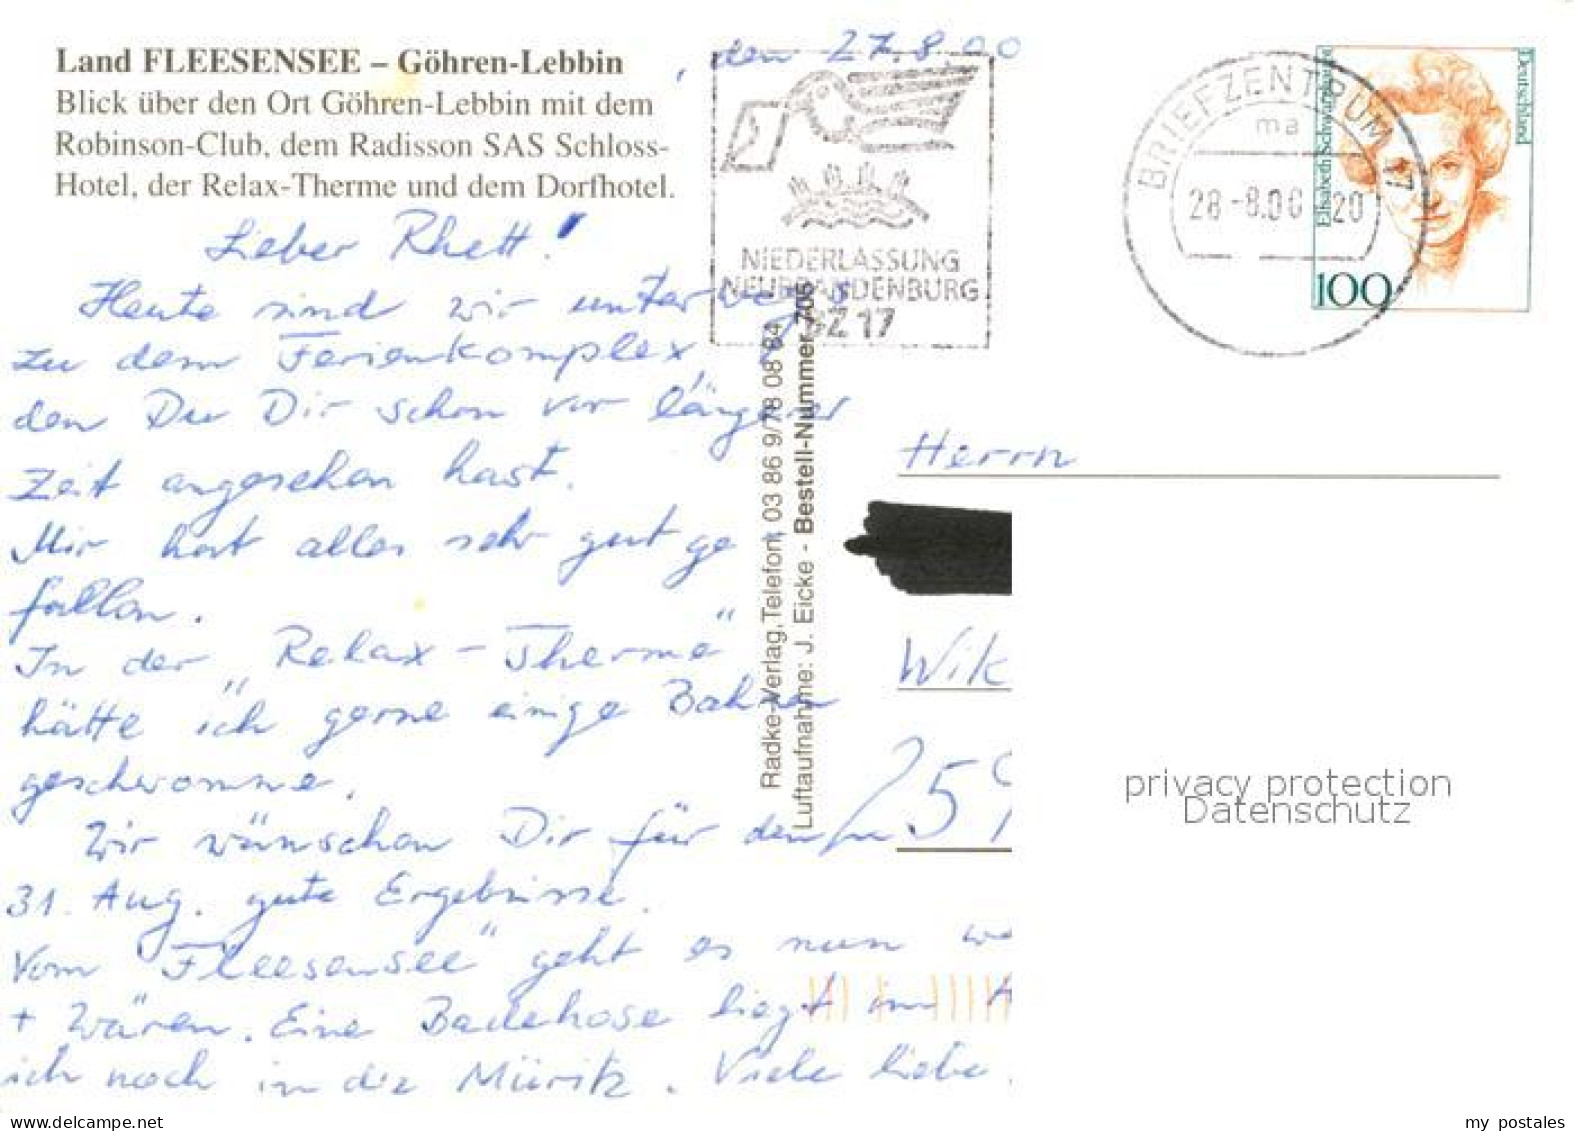 Land FLEESENSEE – Göhren-Lebbin
Blick über den Ort Göhren-Lebbin mit dem
Robinson-Club, dem Radisson SAS Schloss-
Hotel, der Relax-Therme und dem Dorfhotel.
, den 27.8.00
Lieber Rhett!
Heute sind wir unterwegs
zu dem Ferienkomplex,
den Du Dir schon vor längerer
Zeit angesehen hast.
Mir hat alles sehr gut ge
fallen.
In der „Relax-Therme"
hätte ich gerne einige Bahnen
geschwomme.
Wir wünschen Dir für den
31. Aug. gute Ergebnisse.
Vom "Fleesensee" geht es nun
+ Wären. Eine Badehose liegt im
ich noch in die Müritz. Viele liebe
NIEDERLASSUNG
NEUBRANDENBURG
BZ 17
BRIEFZENTRUM 17
ma
28-8.00 20
Deutschland
Elisabeth Schwarzhaupt
100
Radke-Verlag, Telefon 03 86 9/78 08 84
Luftaufnahme: J. Eicke - Bestell-Nummer 706
Herrn
Wik
259
privacy protection
Datenschutz
www.delcampe.net
my_postales